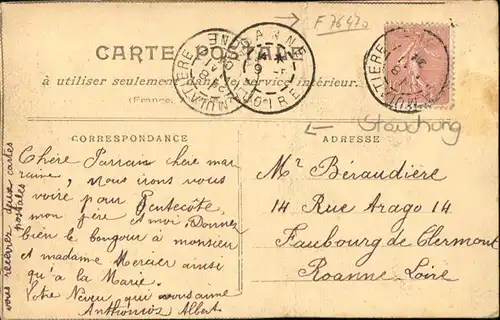 F 7647a
CARTE POSTALE
à utiliser seulement dans le service intérieur.
(France,
Stauchung
CORRESPONDANCE
ADRESSE
Chère Parrain chere mar
raine, Nous irons vous
voire pour Pentecôte,
mon père et moi, Donnez
bien le bonjour à monsieur
et madame Mercier ainsi
qu'a la Marie.
Votre Neveu qui vous aime
Albert
vous recevrer deux cartes
postales
Mr Béraudière
14 Rue Arago 14
Faubourg de Clermont
Roanne Loire